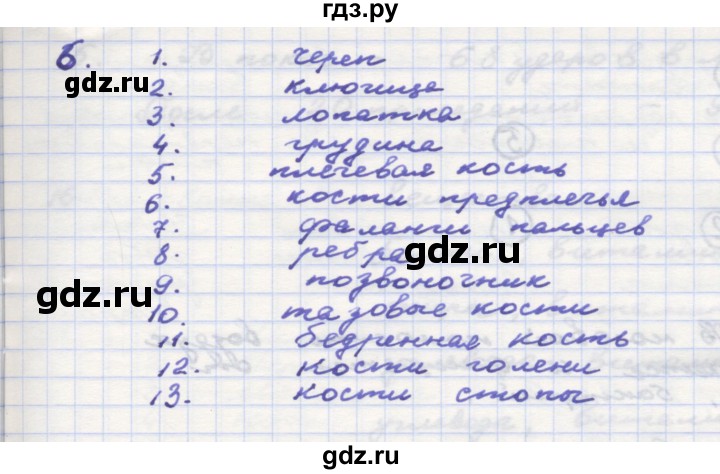 гдз.ру
6. 1. череп
2. ключица
3. лопатка
4. грудина
5. плечевая кость
6. кости предплечья
7. фаланги пальцев
8. ребра
9. позвоночник
10. тазовые кости
11. бедренная кость
12. кости голени
13. кости стопы
gdz.ru
gdz.ru
gdz.ru
gdz.ru
gdz.ru
gdz.ru